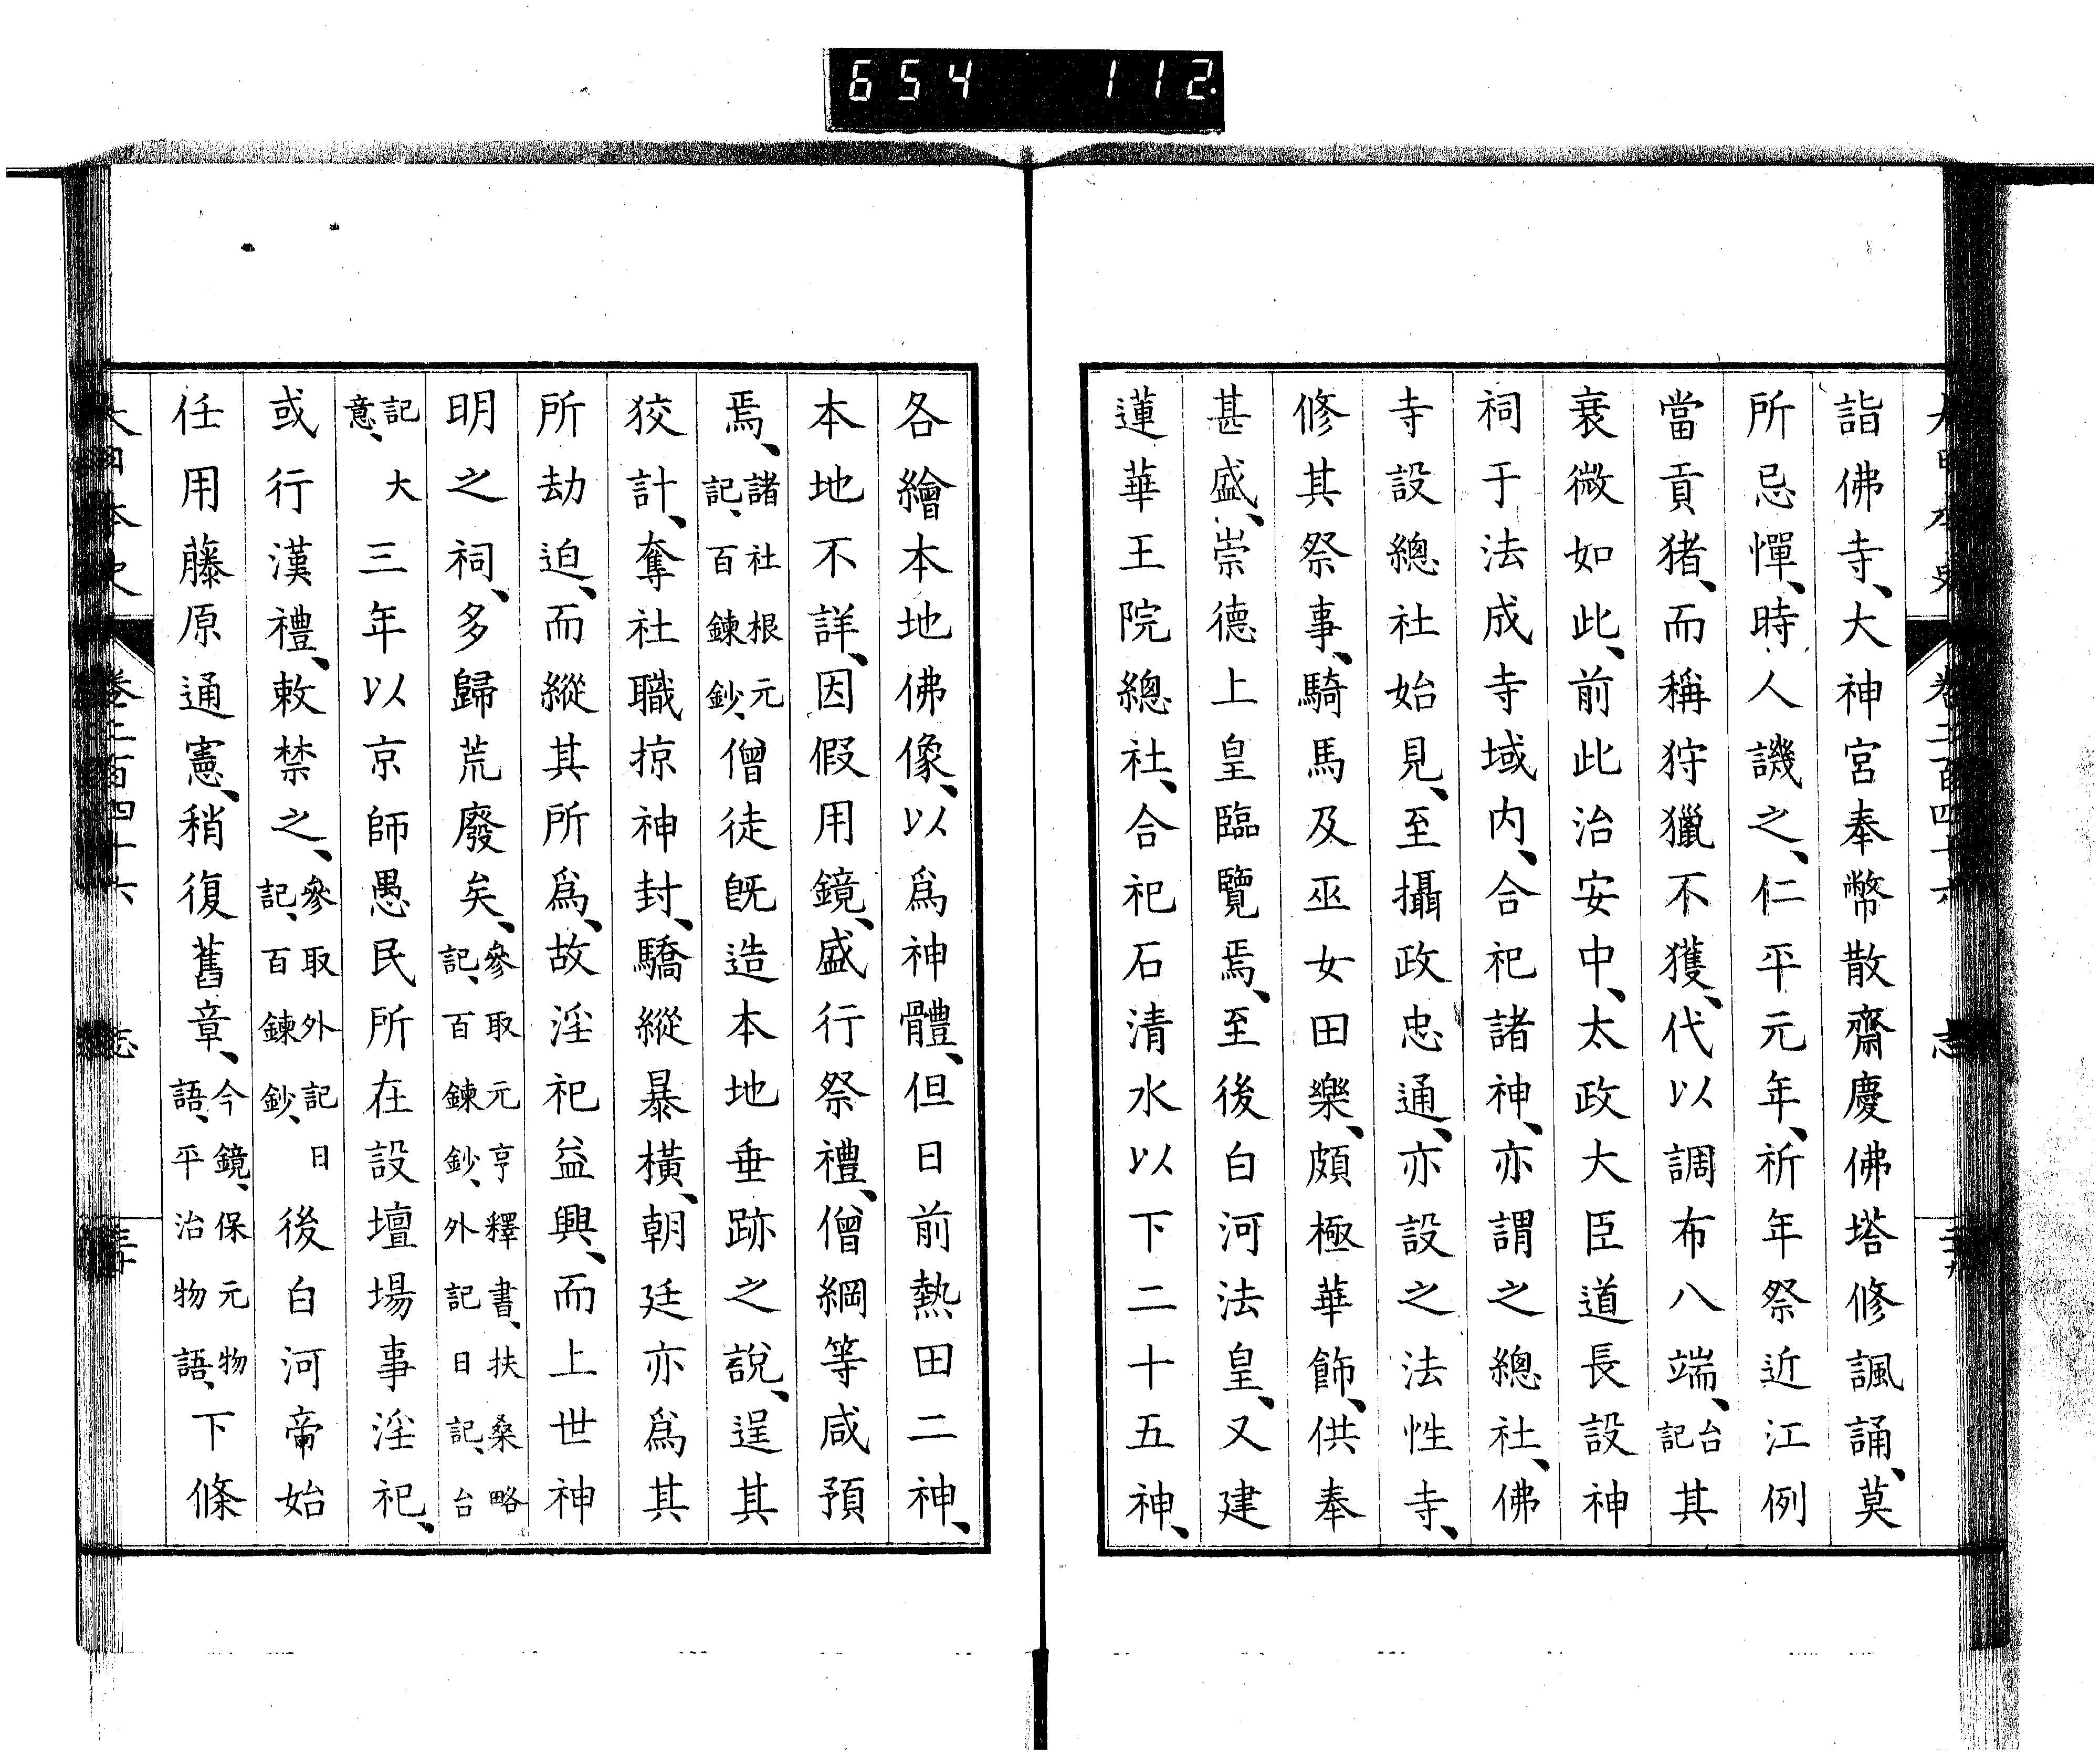 654 112.
大日本史 卷二百四十六 志
詣佛寺、大神宮奉幣散齋慶佛塔修諷誦、莫
所忌憚、時人譏之、仁平元年、祈年祭近江例
當貢猪、而稱狩獵不獲、代以調布八端、台記其
衰微如此、前此治安中、太政大臣道長設神
祠于法成寺域内、合祀諸神、亦謂之總社、佛
寺設總社始見、至攝政忠通、亦設之法性寺、
修其祭事、騎馬及巫女田樂、頗極華飾、供奉
甚盛、崇德上皇臨覽焉、至後白河法皇、又建
蓮華王院總社、合祀石清水以下二十五神、
各繪本地佛像、以爲神體、但日前熱田二神、
本地不詳、因假用鏡、盛行祭禮、僧綱等咸預
焉、諸社根元記、百鍊鈔、僧徒旣造本地垂跡之說、逞其
狡計、奪社職掠神封、驕縱暴橫、朝廷亦爲其
所劫迫、而縱其所爲、故淫祀益興、而上世神
明之祠、多歸荒廢矣、參取元亨釋書、扶桑略記、百鍊鈔、外記日記、台
記大意、三年以京師愚民所在設壇場事淫祀、
或行漢禮、敕禁之、參取外記日記、百鍊鈔、後白河帝始
任用藤原通憲、稍復舊章、今鏡、保元物語、平治物語、下條
大日本史 卷二百四十六 志